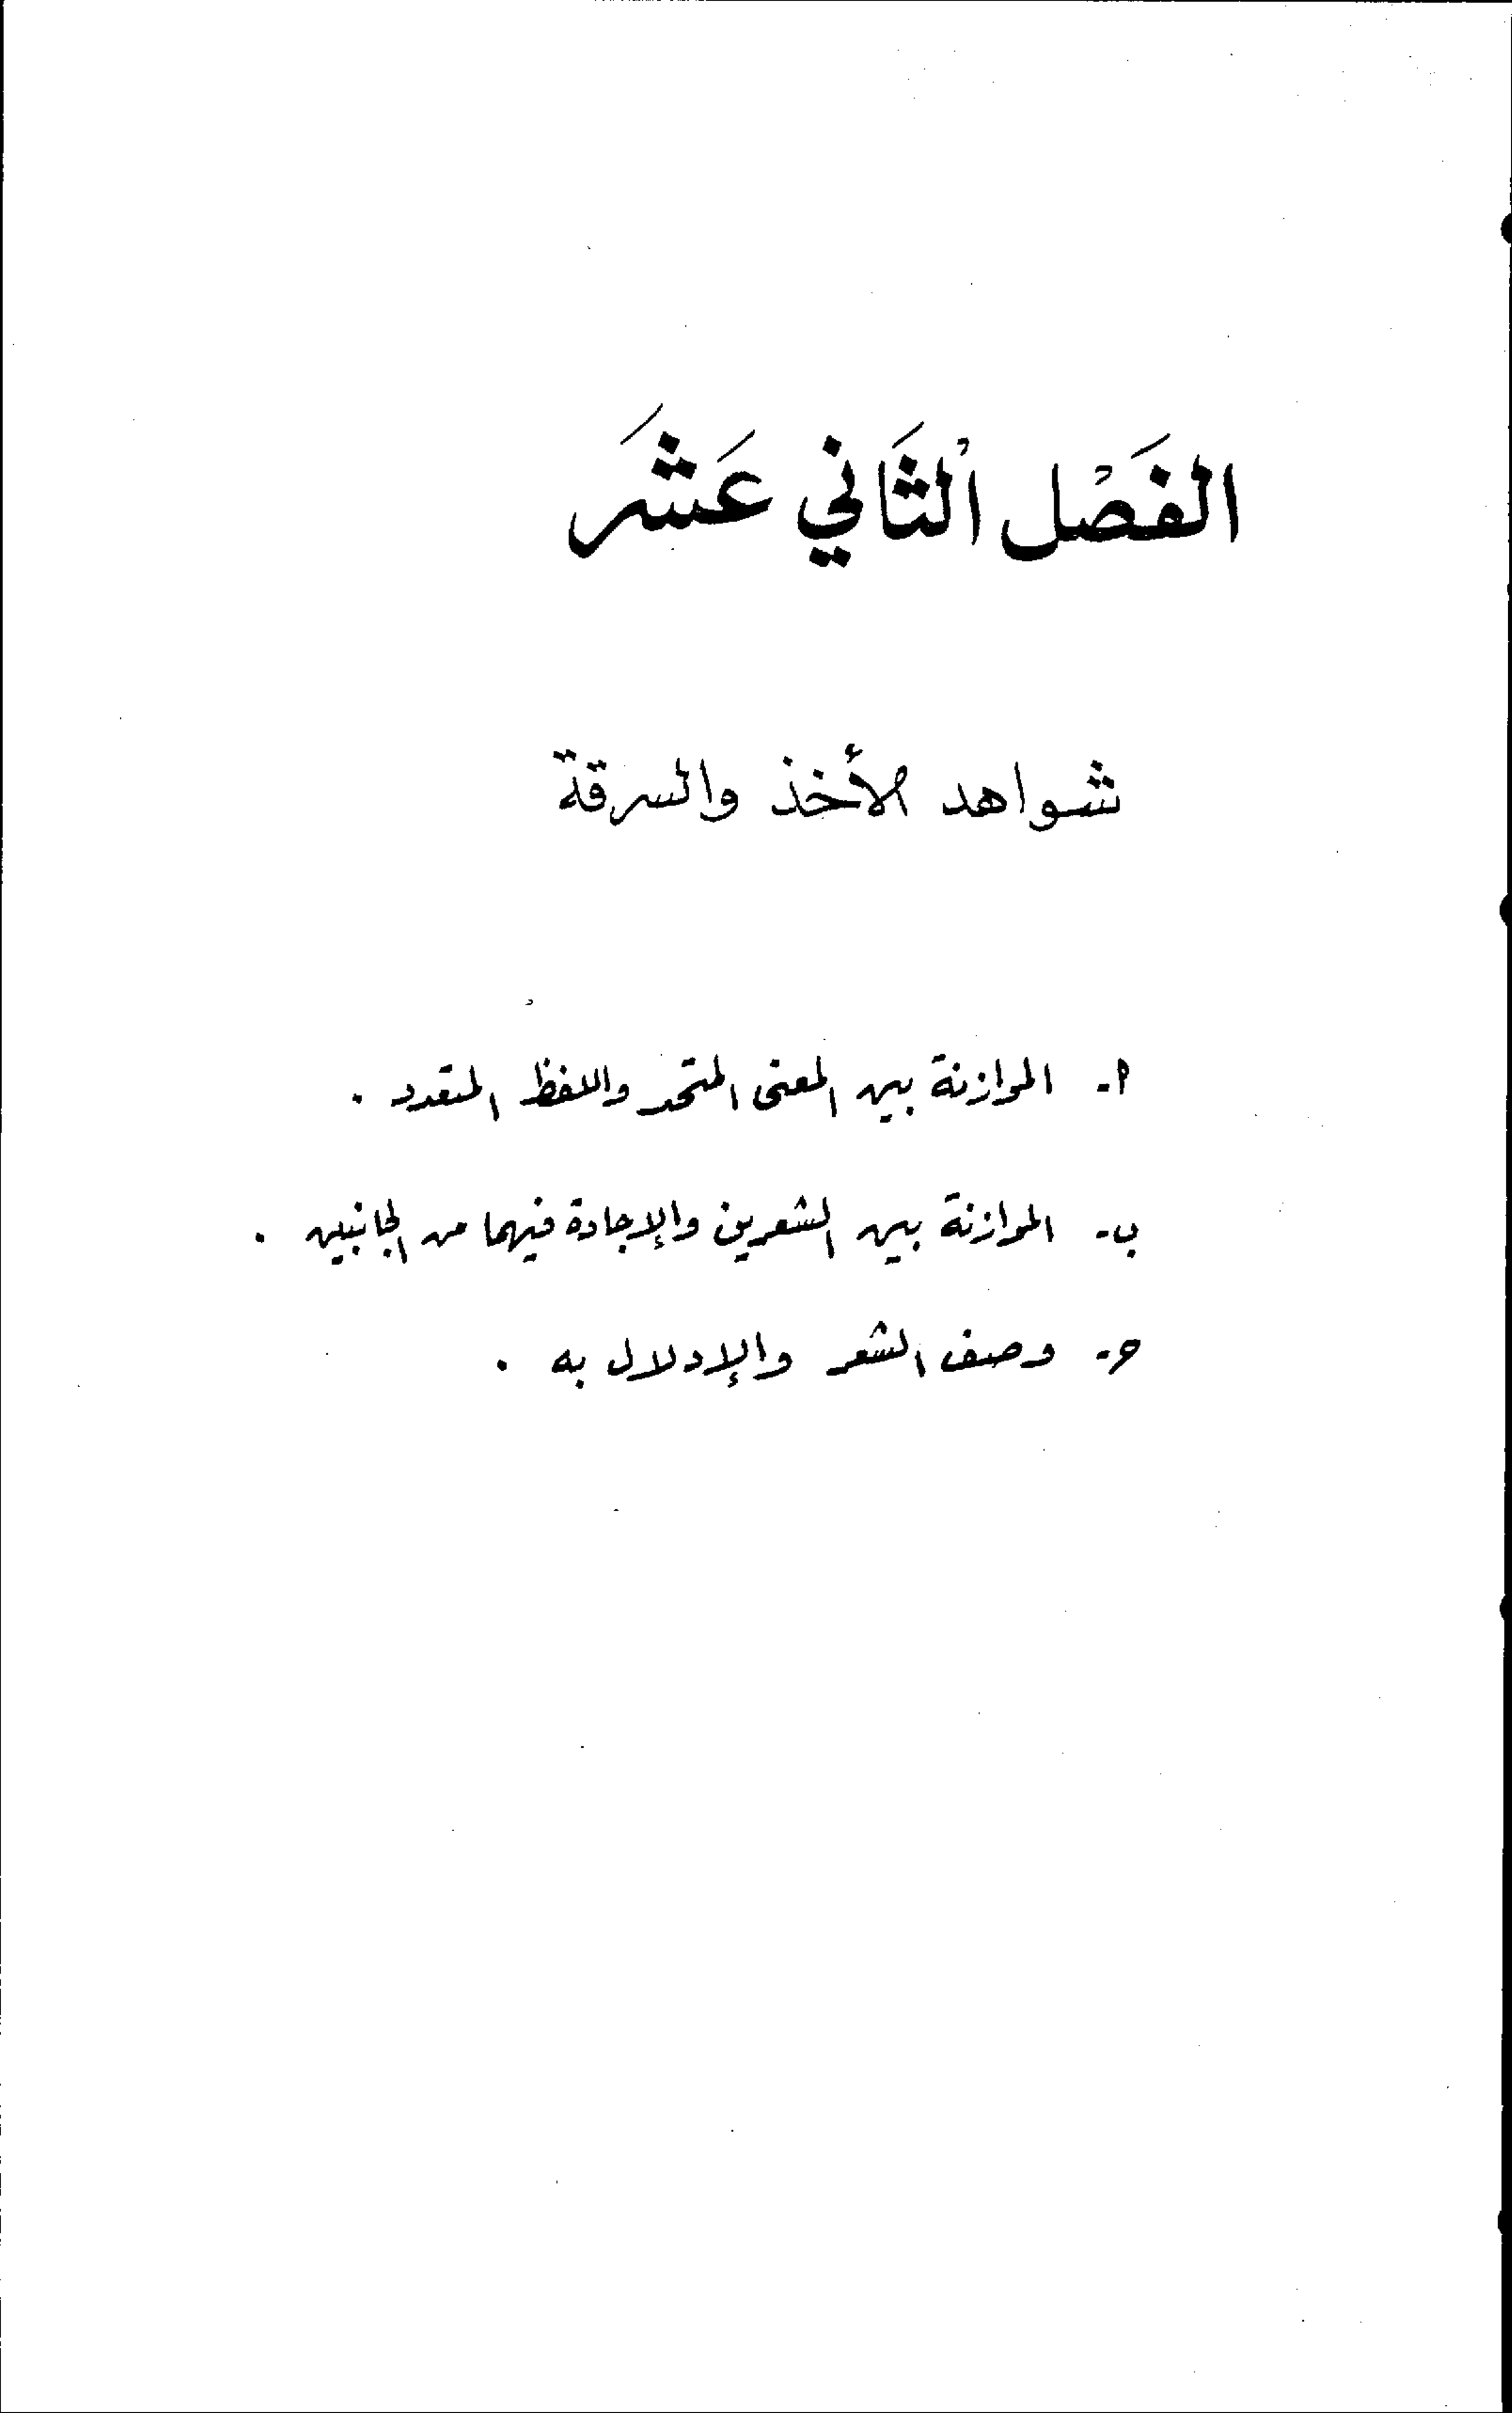 الفَصْل الثَاني عَشَرَ
شواهد الأخذ والسرقة
أ- الموازنة بين المعنى المتحد واللفظ المتعدد .
ب- الموازنة بين الشعرين والإجادة فيهما من الجانبين .
ج- وصف الشعر والإدلال به .